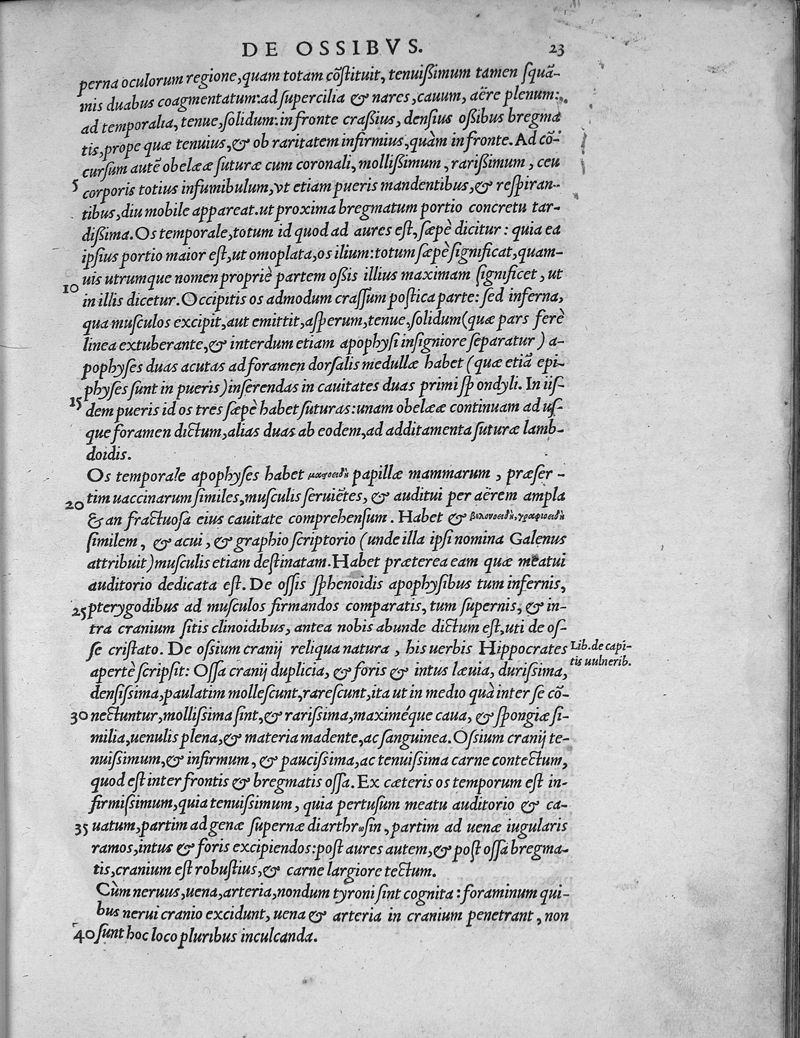 DE OSSIBVS. 23
perna oculorum regione, quam totam cõstituit, tenuißimum tamen squã-
mis duabus coagmentatum: ad supercilia & nares, cauum, aëre plenum:
ad temporalia, tenue, solidum: in fronte craßius, densius oßibus bregma
tis, prope quæ tenuius, & ob raritatem infirmius, quàm in fronte. Ad cõ-
cursum autẽ obelææ suturæ cum coronali, mollißimum, rarißimum, ceu
5 corporis totius infumibulum, vt etiam pueris mandentibus, & respiran-
tibus, diu mobile appareat. ut proxima bregmatum portio concretu tar-
dißima. Os temporale, totum id quod ad aures est, sæpè dicitur: quia ea
ipsius portio maior est, ut omoplata, os ilium: totum sæpè significat, quam-
uis utrumque nomen propriè partem oßis illius maximam significet, ut
10 in illis dicetur. Occipitis os admodum crassum postica parte: sed inferna,
qua musculos excipit, aut emittit, asperum, tenue, solidum (quæ pars ferè
linea extuberante, & interdum etiam apophysi insigniore separatur) a-
pophyses duas acutas ad foramen dorsalis medullæ habet (quæ etiã epi-
physes sunt in pueris) inserendas in cauitates duas primi spondyli. In iis-
15 dem pueris id os tres sæpè habet suturas: unam obelææ continuam ad us-
que foramen dictum, alias duas ab eodem, ad additamenta suturæ lamb-
doidis.
Os temporale apophyses habet μαστοειδῆ papillæ mammarum, præser-
tim uaccinarum similes, musculis seruiẽtes, & auditui per aërem ampla
20 & anfractuosa eius cauitate comprehensum. Habet & βελονοειδῆ, γραφιοειδῆ
similem, & acui, & graphio scriptorio (unde illa ipsi nomina Galenus
attribuit) musculis etiam destinatam. Habet præterea eam quæ meatui
auditorio dedicata est. De ossis sphenoidis apophysibus tum infernis,
25 pterygodibus ad musculos firmandos comparatis, tum supernis, & in-
tra cranium sitis clinoidibus, antea nobis abunde dictum est, uti de os-
se cristato. De ossium cranij reliqua natura, his uerbis Hippocrates
Lib. de capi-
tis uulnerib.
apertè scripsit: Ossa cranij duplicia, & foris & intus læuia, durissima,
densissima, paulatim mollescunt, rarescunt, ita ut in medio quà inter se cõ-
30 nectuntur, mollissima sint, & rarissima, maximéque caua, & spongiæ si-
milia, uenulis plena, & materia madente, ac sanguinea. Ossium cranij te-
nuissimum, & infirmum, & paucissima, ac tenuissima carne contectum,
quod est inter frontis & bregmatis ossa. Ex cæteris os temporum est in-
firmissimum, quia tenuissimum, quia pertusum meatu auditorio & ca-
35 uatum, partim ad genæ supernæ diarthrosin, partim ad uenæ iugularis
ramos, intus & foris excipiendos: post aures autem, & post ossa bregma-
tis, cranium est robustius, & carne largiore tectum.
Cùm neruus, uena, arteria, nondum tyroni sint cognita: foraminum qui-
bus nerui cranio excidunt, uena & arteria in cranium penetrant, non
40 sunt hoc loco pluribus inculcanda.